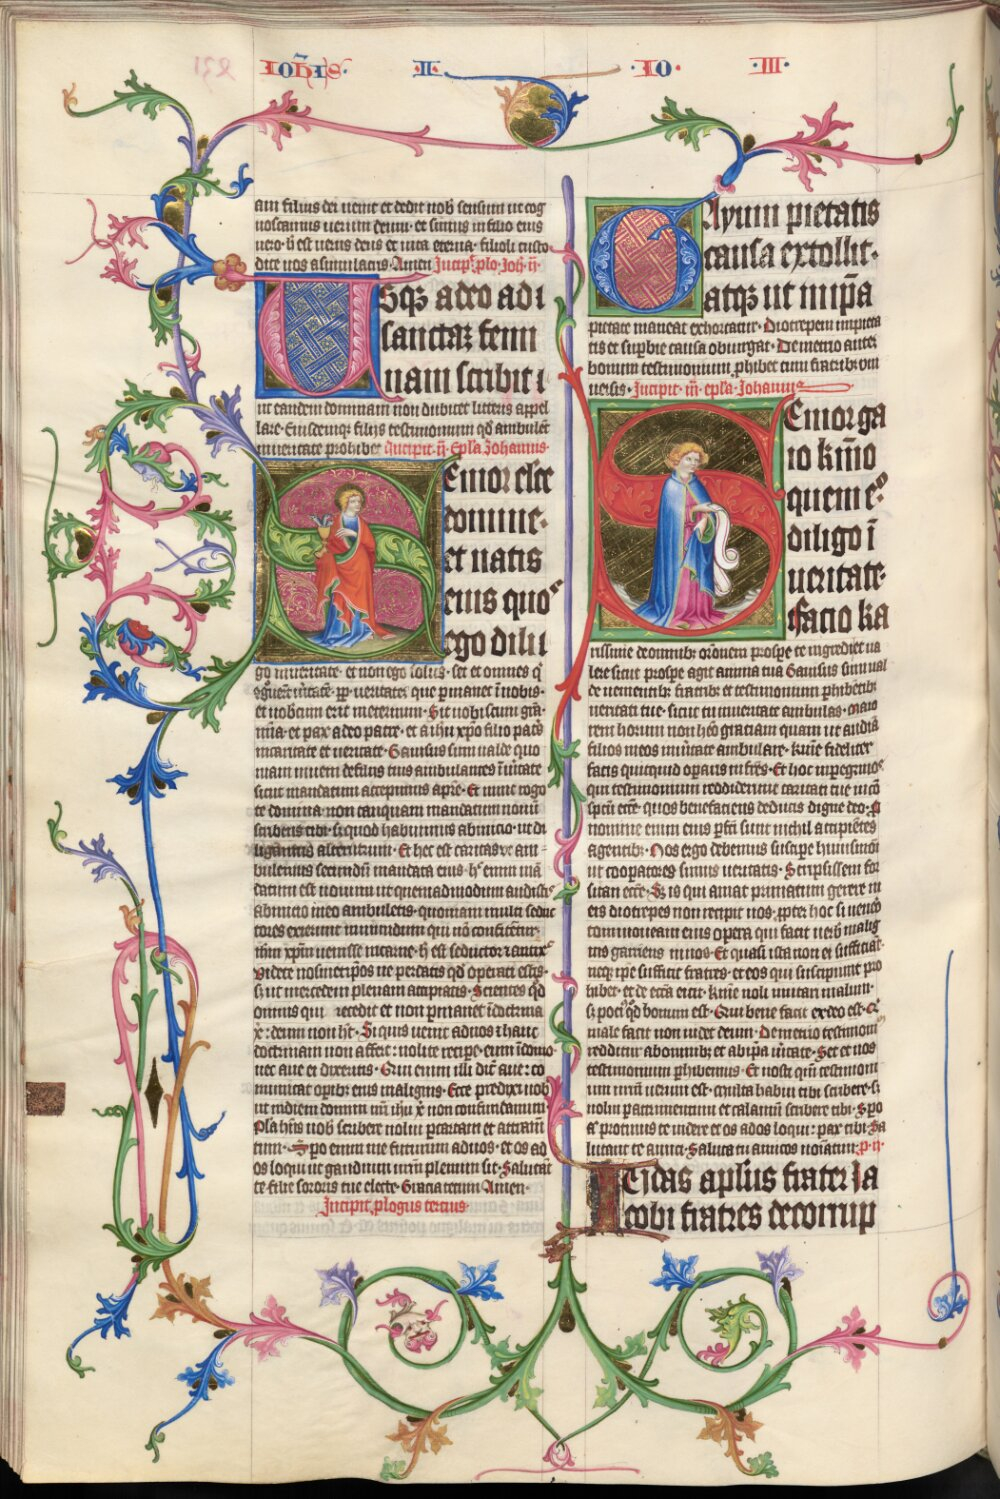 231 Ioh̄is · II · IO · III ·
am filius dei uenit et dedit nob̄ sensum ut cog
noscamus uerum deum · et simus in filio eius
uero · h̄ est uerus deus et uita eterna · filioli custo
dite uos a simulacris · Amen Incip̄ · plo · Joh̄ · ij ·
Usqꝫ adeo ad i
sanctaꝫ femi
nam scribit i
ut eandem dominam non dubitet litteris appel
lare · Eiusdemqꝫ filijs testimonium qd̄ ambulēt
in ueritate prohibet Incipit · ij · Ep̄la Johannis ·
Senior elec
te domine ·
et natis
eius quo
ego dili
go in ueritate · et non ego solus · set et omnes q̄
et nobcum erit in eternum · Sit uobiscum gr̄a ·
mīa · et pax a deo patre · et a ih̄u xp̄o filio patͥs
in caritate et ueritate · Gauisus sum ualde quo
niam inueni de filijs tuis ambulantes ī uītate
sicut mandatum accepimus a pr̄e · Et nunc rogo
te domina non tanquam mandatum nouū
scribens tibi · s; quod habuimus ab inicio · ut di
ligamus alterutrum · Et hec est caritas ut am
bulemus secundū mandata eius · h̄ enim mā
datum est nouum ut quemadmodum audistis
ab inicio in eo ambuletis · quoniam multi seduc
tores exierunt in mundum qui nō confitētur
ih̄m xp̄m uenisse in carne · h̄ est seductor ⁊ antix̄
Videte nosmetip̄os ne perdatis qd̄ operati estis
s; ut mercedem plenam accipiatis · Scientes qd̄
omnis qui recedit et non permanet ī doctrina
x̄ · deum non h̄t · Si quis uenit ad uos ⁊ hanc
doctrinam non affert · nolite recip̄e · eum ī domo
nec aue ei dixeritis · Qui enim illi dic̄ aue · co
municat opib; eius malignis · Ecce predixi uob̄
ut in diem domini nr̄i ih̄u x̄ non confundamini
Pla h̄ns uob̄ scribere nolui p cartam et attramē
tum · Spero enim me futurum ad uos · et os ad
os loqui ut gaudium ur̄m plenum sit · Salutāt
te filie sororis tue electe · Gracia tecum Amen ·
Incipit plogus tercius
Gayum pietatis
causa extollit ·
atqꝫ ut in ip̄a
pietate maneat exhortatur · Diotrepem impieta
tis et supbie causa obiurgat · Demetrio autē
bonum testimonium phibet cum fratrib; vni
uersis · Incipit · iij · ep̄la · Johannis
Senior ga
io kīmo
quem e°
diligo ī
ueritate ·
facio ka
rissime de omnib; orōnem prospe te ingredi et ua
lere sicut prospe agit anima tua Gauisus sum ual
de uenientib; fratrib; et testimonium phibētib;
ueritati tue · sicut tu in ueritate ambulas · Maio
rem horum non heo graciam quam ut audiā
filios meos in uītate ambulare · kīme fideliter
facis quicquid operaris in fr̄es · Et hoc in peg̓nos
qui testimonium reddiderunt caritati tue in cō
spcū ecc̄e · quos benefaciens deducis digne deo · P
nomine enim eius pfc̄i sunt nichil accipiētes
a gentib; · Nos ergo debemus suscipe huiusmōi
ut cooperatores simus ueritatis · Scripsissem for
sitan ecc̄e · S; is qui amat primatum gerere in
eis diotrepes non recipit nos · ppter hoc si uenero
commoneam eius opera qui facit uerb̄ malig
nis garriens in nos · Et quasi ista non ei sufficiāt
neqꝫ ip̄e suscipit fratres · et eos qui suscipiunt pro
hibet · et de ecc̄a eicit · kīme noli imitari malum ·
s; poci͛ qd̄ bonum est · Qui bene facit ex deo est · q͛
male facit non uidet deum · Demetrio testimoni
redditur ab omnib; et ab ip̄a uītate · Set et nos
testimonium phibemus · Et nosti qm̄ testimoni
um nr̄m uerum est · Multa habui tibi scribere · s;
nolui p atramentum et calamū scribere tibi · Spo
a͛ protinus te uidere et os ad os loqui · pax tibi · Sa
lutant te amici · Saluta tu amicos noīatim · p · n ·
Iudas aplūs frater Ja
cobi fratres de corrup